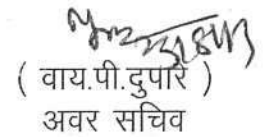 ( वाय.पी.दुपारे )
अवर सचिव